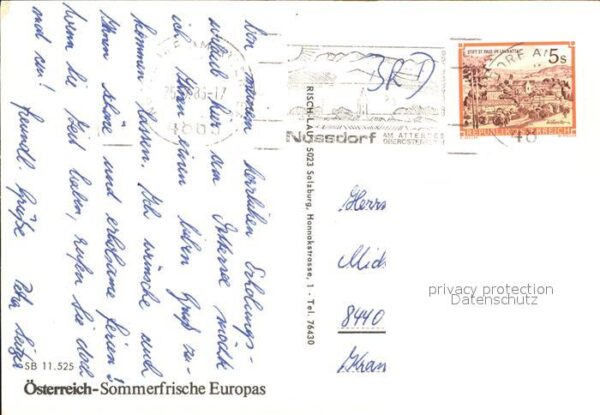 Von meinem herrlichen Erholungs-
urlaub hier am Attersee möchte
ich Ihnen einen lieben Gruß zu-
kommen lassen. Ich wünsche auch
Ihnen schöne und erholsame Ferien!
Wenn Sie Zeit haben, rufen Sie doch
mal an! Freundl. Grüße
SB 11.525
Österreich-Sommerfrische Europas
RISCH-LAU, 5023 Salzburg, Hannakstrasse, 1 - Tel. 76430
BRD
Nussdorf
AM ATTERSEE
OBERÖSTERR
4865
STIFT ST. PAUL IM LAVANTTAL
5s
REPUBLIK ÖSTERREICH
Herrn
8440
privacy protection
Datenschutz